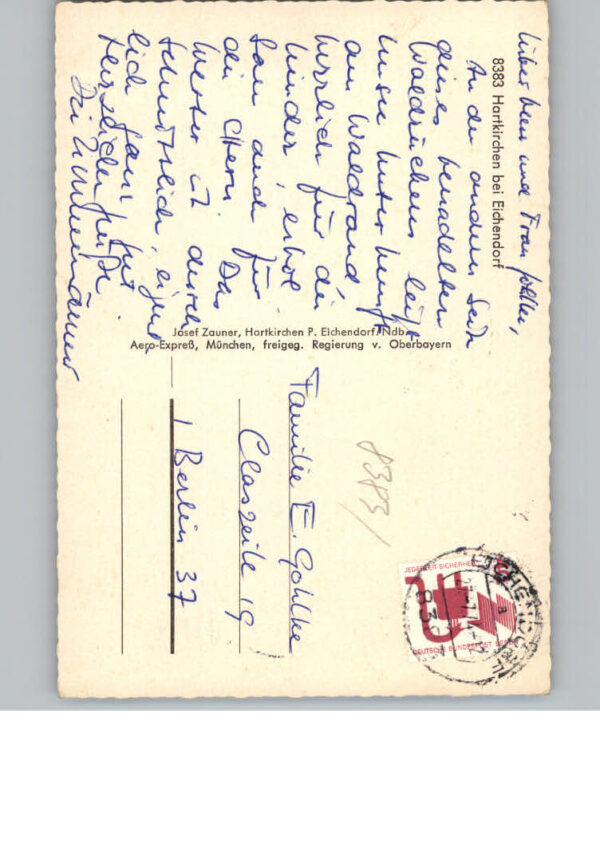 8383 Hartkirchen bei Eichendorf
Lieber Herr und Frau Gohlke,
An der andern Seite
dieses benadelten
Waldrückens liegt
unsere Unterkunft
am Waldrand,
herrlich für die
Kinder, erhol-
sam auch für
die Eltern. Das
Wetter ist durch-
schnittlich, eigent-
lich ganz gut
Herzliche Grüße
Die
Josef Zauner, Hartkirchen P. Eichendorf/Ndb.
Aero-Expreß, München, freigeg. Regierung v. Oberbayern
Familie E. Gohlke
Claszeile 19
1 Berlin 37
8383/
JEDERZEIT SICHERHEIT
DEUTSCHE BUNDESPOST BERLIN
EICHENDORF